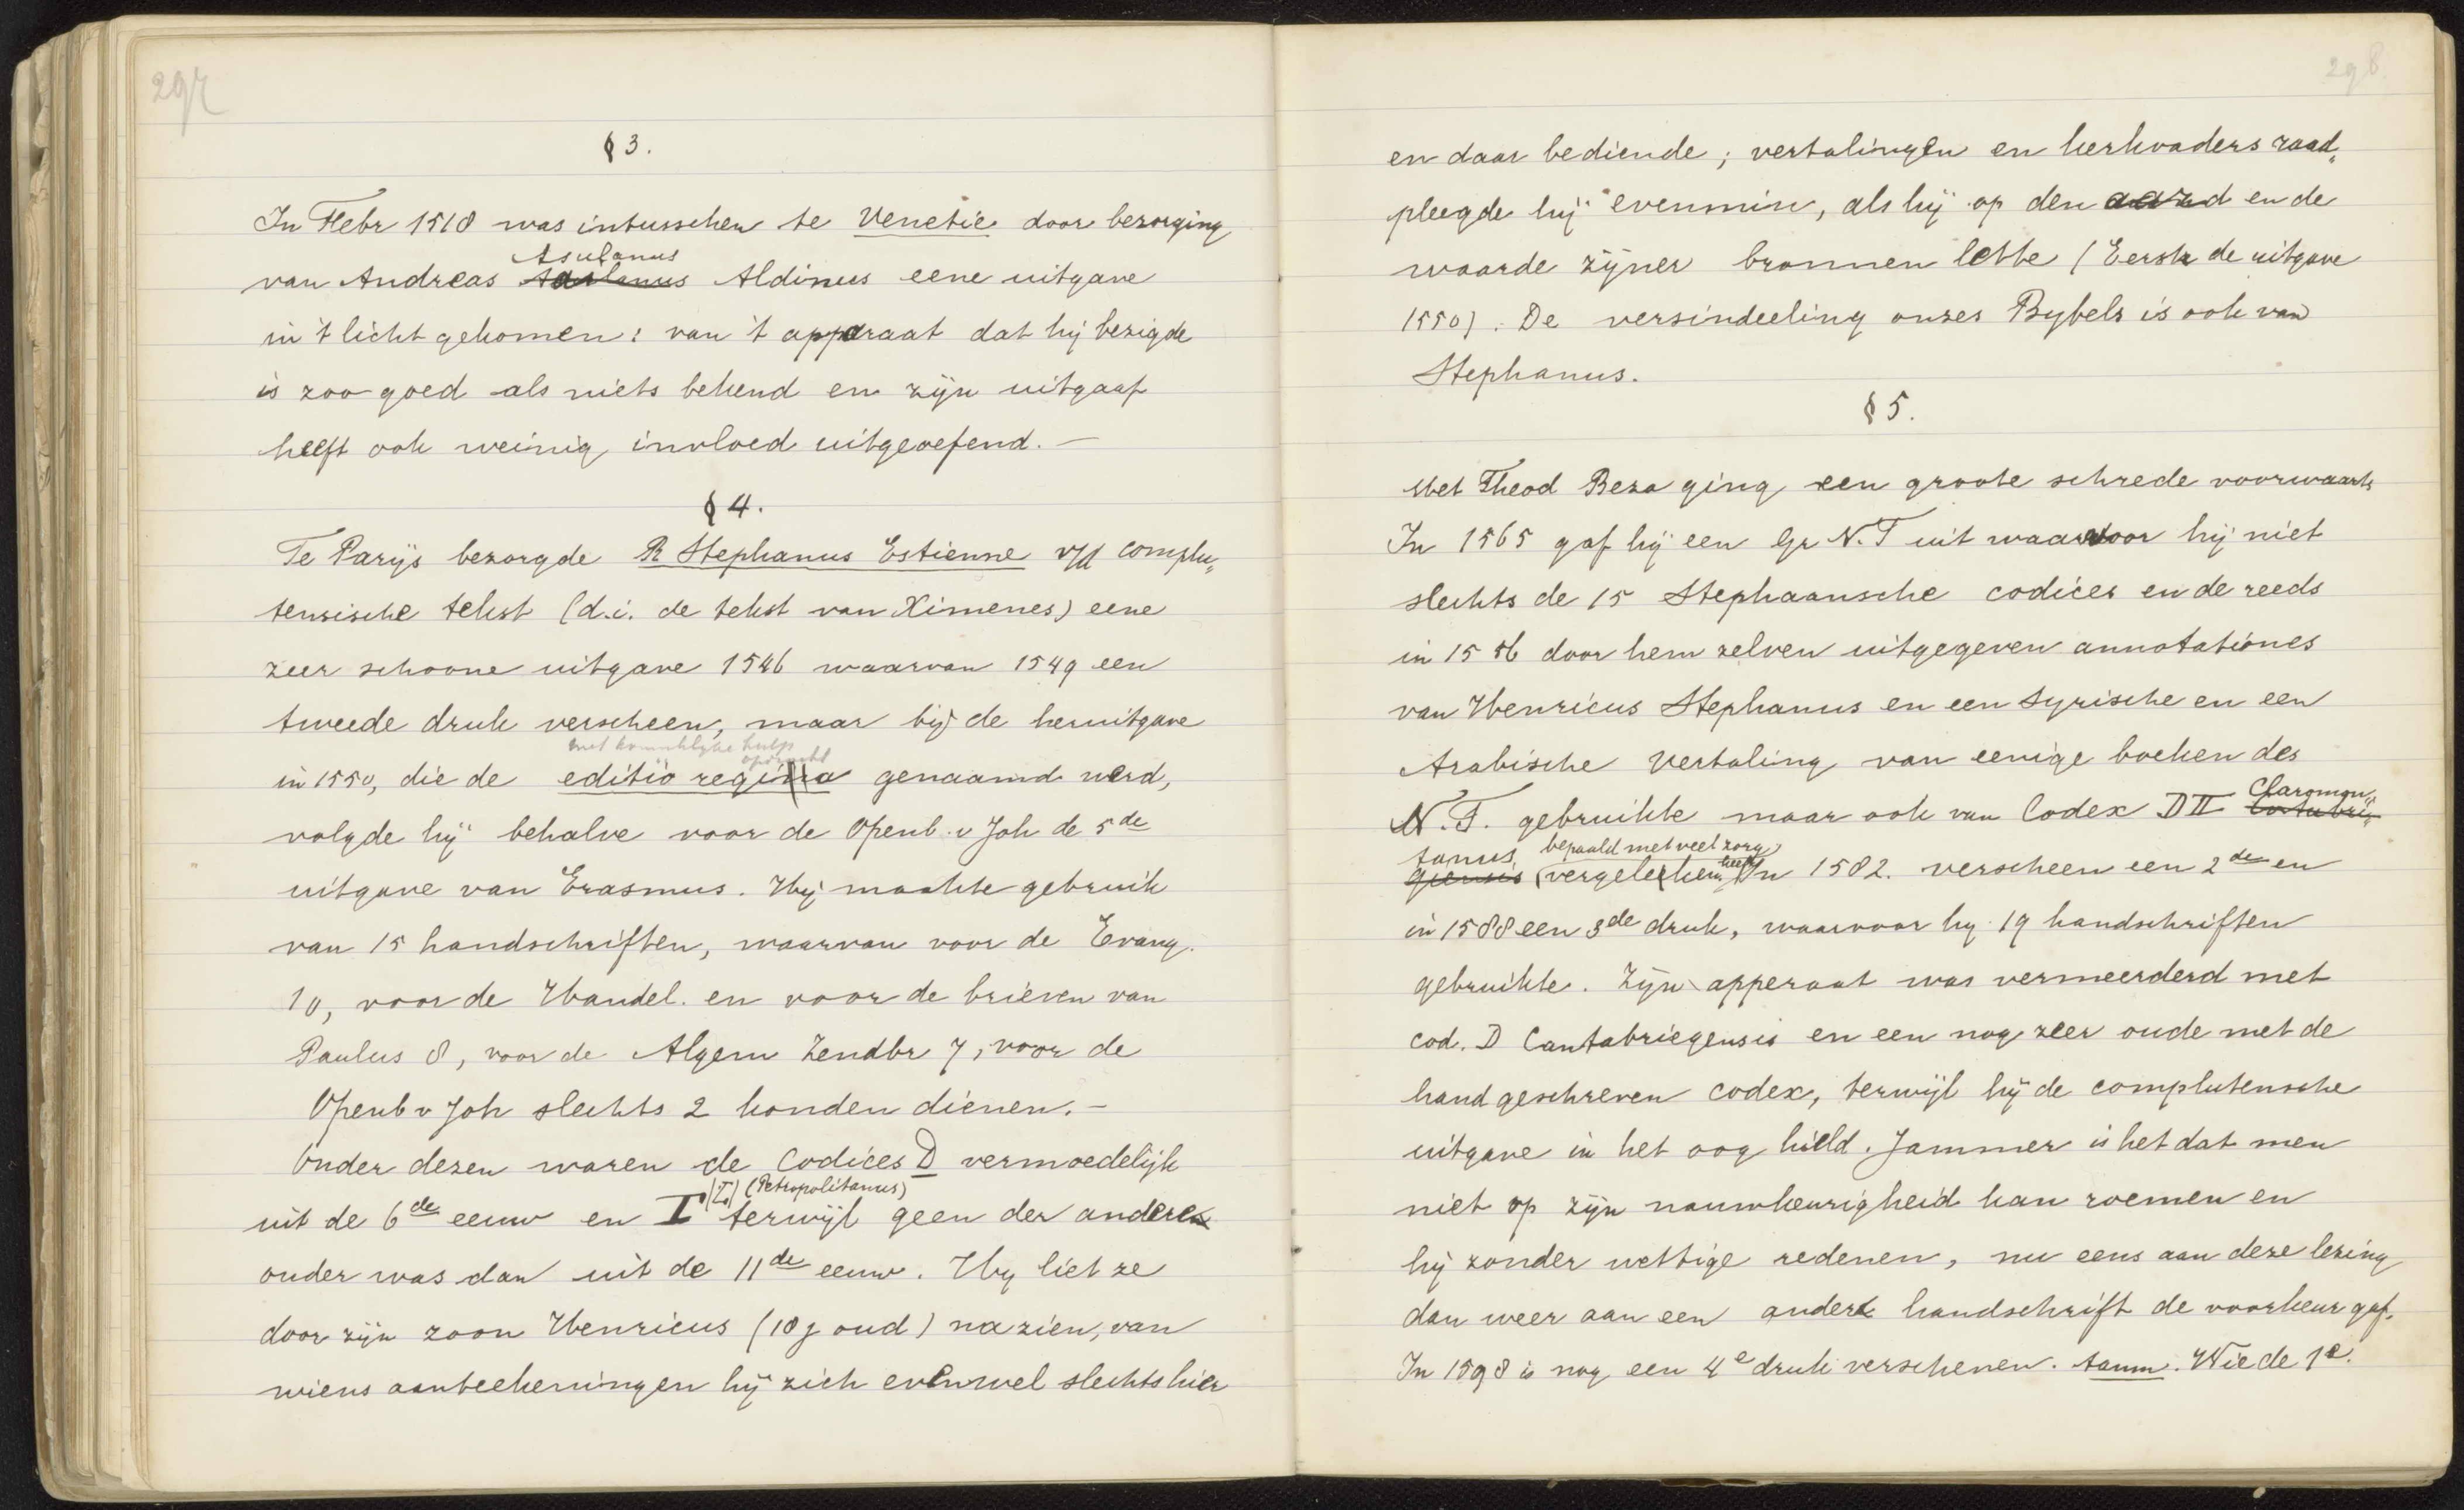 297
§ 3.
In Febr 1518 was intusschen te Venetië door bezorging
Asulanus
van Andreas Aldinus eene uitgave
in 't licht gekomen: van 't apparaat dat hij bezigde
is zoo goed als niets bekend en zijn uitgaaf
heeft ook weinig invloed uitgeoefend. —
§ 4.
Te Parijs bezorgde R Stephanus Estienne v/d complu„
tensische tekst (d.i. de tekst van Ximenes) eene
zeer schoone uitgave 1546 waarvan 1549 een
tweede druk verscheen, maar bij de heruitgave
met koninklijke hulp
opdracht
in 1550, die de editio regia genaamd werd,
volgde hij behalve voor de Openb. v Joh de 5de
uitgave van Erasmus. Hij maakte gebruik
van 15 handschriften, waarvan voor de Evang.
10, voor de Handel. en voor de brieven van
Paulus 8, voor de Algem Zendbr 7, voor de
Openb v Joh slechts 2 konden dienen. –
Onder dezen waren de Codices D vermoedelijk
(I) (Petropolitanus)
uit de 6de eeuw en I terwijl geen der andere
ouder was dan uit de 11de eeuw. Hij liet ze
door zijn zoon Henricus (18 j oud) nazien, van
wiens aanteekeningen hij zich evenwel slechts hier
298
en daar bediende; vertalingen en kerkvaders raad„
pleegde hij evenmin, als hij op den aard en de
waarde zijner bronnen lette (Eerste de uitgave
1550). De versindeeling onzes Bybels is ook van
Stephanus.
§ 5.
Met Theod Beza ging een groote schrede voorwaarts
In 1565 gaf hij een Gr N.T uit waarvoor hij niet
slechts de 15 Stephaansche codices en de reeds
in 1556 door hem zelven uitgegeven annotationes
van Henricus Stephanus en een Syrische en een
Arabische Vertaling van eenige boeken des
Claromon„
N.T. gebruikte maar ook van Codex D II Cantabri„
tanus bepaald met veel zorg
giensis (vergeleken heeft In 1582. verscheen een 2de en
in 1588 een 3de druk, waarvoor hij 19 handschriften
gebruikte. Zijn apperaat was vermeerderd met
cod. D Cantabriegensis en een nog zeer oude met de
hand geschreven codex, terwijl hij de complutensche
uitgave in het oog hield. Jammer is het dat men
niet op zijn nauwkeurigheid kan roemen en
hij zonder wettige redenen, nu eens aan deze lezing
dan weer aan een ander handschrift de voorkeur gaf.
In 1598 is nog een 4e druk verschenen. Aanm. Wie de 1e.